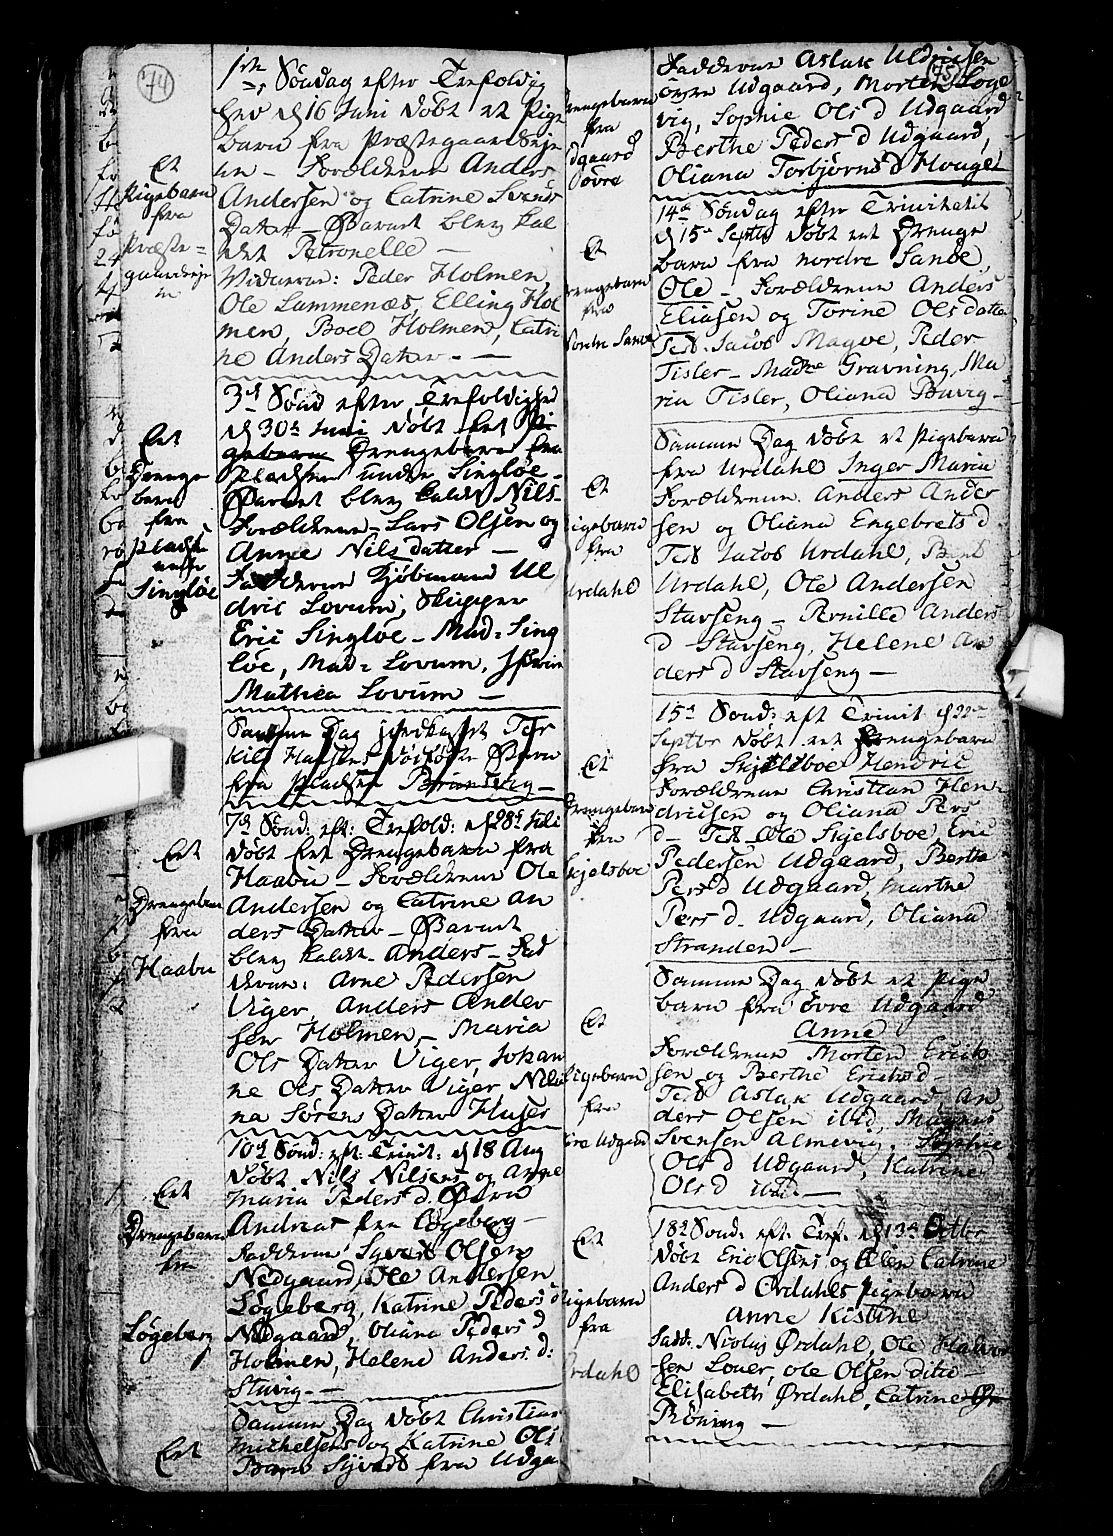 74
1ste Søndag efter Trefoldig
hed d 16 Juni døbt et Pige
barn fra Præstegaardseje
n - Forældrene Anders
Andersen og Catrine Svends
Datter - Barnet blev kal
det Petronelle -
Vidnerne: Peder Holmen
Ole Lammenæs, Elling Hol
men, Boel Holmen, Catri
ne Anders Datter - -
Et
Pigebarn
fra
Præste-
gaardseje
n
3d Sønd efter Trefoldighed
d 30te Juni døbt Eet Pi
gebarn Drengebarn fra
Pladsen under Singløe -
Barnet blev kaldt Nils -
Forældrene - Lars Olsen og
Anne Nils datter -
Fadderne Kjøbmand Ul
dric Lovum, Skipper
Eric Singløe - Mad: Sing
løe, Mad: Lovum,
Mathea Lovum -
Eet
Drenge
barn
fra
Pladsen
under
Singløe
Samme Dag jordkastet Ter
kild Hansens dødfødte Barn
fra Pladsen Brunsvig -
7d Sønd: eft: Trefold: d 28d Juli
døbt Eet Drengebarn fra
Haabu - Forældrene Ole
Andersen og Catrine An
ders Datter - Barnet
blev kaldt - Anders - Fad
derne: Arne Pedersen
Viger, Anders Ander
sen Holmen, Maria
Ols Datter Viger, Johan
ne Ols Datter Viger
na Sørens Datter Huser
Eet
Drengebarn
fra
Haabu
10d Sønd: eft: Trinit: d 18 Aug
døbt Nils Nilsens og Anne
Maria Peders d. Barn
Andreas fra Løgeberg -
Fadderne Syvert Olsen
Nedgaard, Ole Andersen
Løgeberg, Katrine Peders d
Nedgaard, Oliana Peders d
Holmen, Helene Anders d:
Stuvig - -
Eet
Drengebarn
fra
Løgeberg
Samme Dag døbt Christian
Michelsens og Katrine Ols
Barn Syvert fra Udga
Eet
75
Fadderne Aslak Uldricsen
øvre Udgaard, Morten Løge
vig, Sophie Ols d Udgaard
Berthe Peders d Udgaard,
Oliana Torbjørns d Houget
Drengebarn
fra
dgaard
øvre
14de Søndag efter Trinitatis
d 15de Septbr døbt eet Drenge
barn fra nordre Sandø
Ole - Forældrene Anders
Eliasen og Torine Ols datter
Test. Jacob Magøe, Peder
Tisler - Madze Gravning, Ma
ria Tisler, Oliana Buvig -
Et
Drengebarn
fra
Nordre Sandø
Samme Dag døbt et Pigebarn
fra Urdahl Inger Maria
Forældrene. Anders Ander
sen og Oliana Engebrets d
Test Jacob Urdahl, Bent
Urdahl, Ole Andersen
Stavseng - Pernille Anders
d - Stavseng, Helene An
ders d Stavseng -
Et
Pigebarn
fra
Urdahl
15de Sønd: eft Trinit d 22de
Septbr døbt eet Drengebarn
fra Skjelsboe Hendric
Forældrene Christian Hen
dricsen og Oliana Pers
d - Test Ole Skjelsboe Eric
Pedersen Udgaard, Berthe
Pers d Udgaard, Marthe
Pers d. Udgaard, Oliana
Stranden -
Et
Drengebarn
fra
Skjelsboe
Samme Dag døbt et Pige
barn fra øvre Udgaard
Anne
Forældrene Morten Erik
sen og Berthe Eriks d
Test Aslak Udgaard, An
ders Olsen ibid, Magnus
Svensen Almevig, Sophie
Ols d Udgaard, Katrine
Ols d ibid -
Et
Pigebarn
fra
øvre Udgaard
18de Sønd: eft: Tref: d 13de Octbr
døbt Eric Olsens og Ellen Catrine
Anders d Ørdahls Pigebarn
Anne Kistine
Fadd. Nicolaj Ørdahl, Ole Halvor
sen Louer, Ole Olsen ditto -
Elisabeth Ørdahl, Catrine
Røning -
Et
Pigebarn
fra
Ørdahl